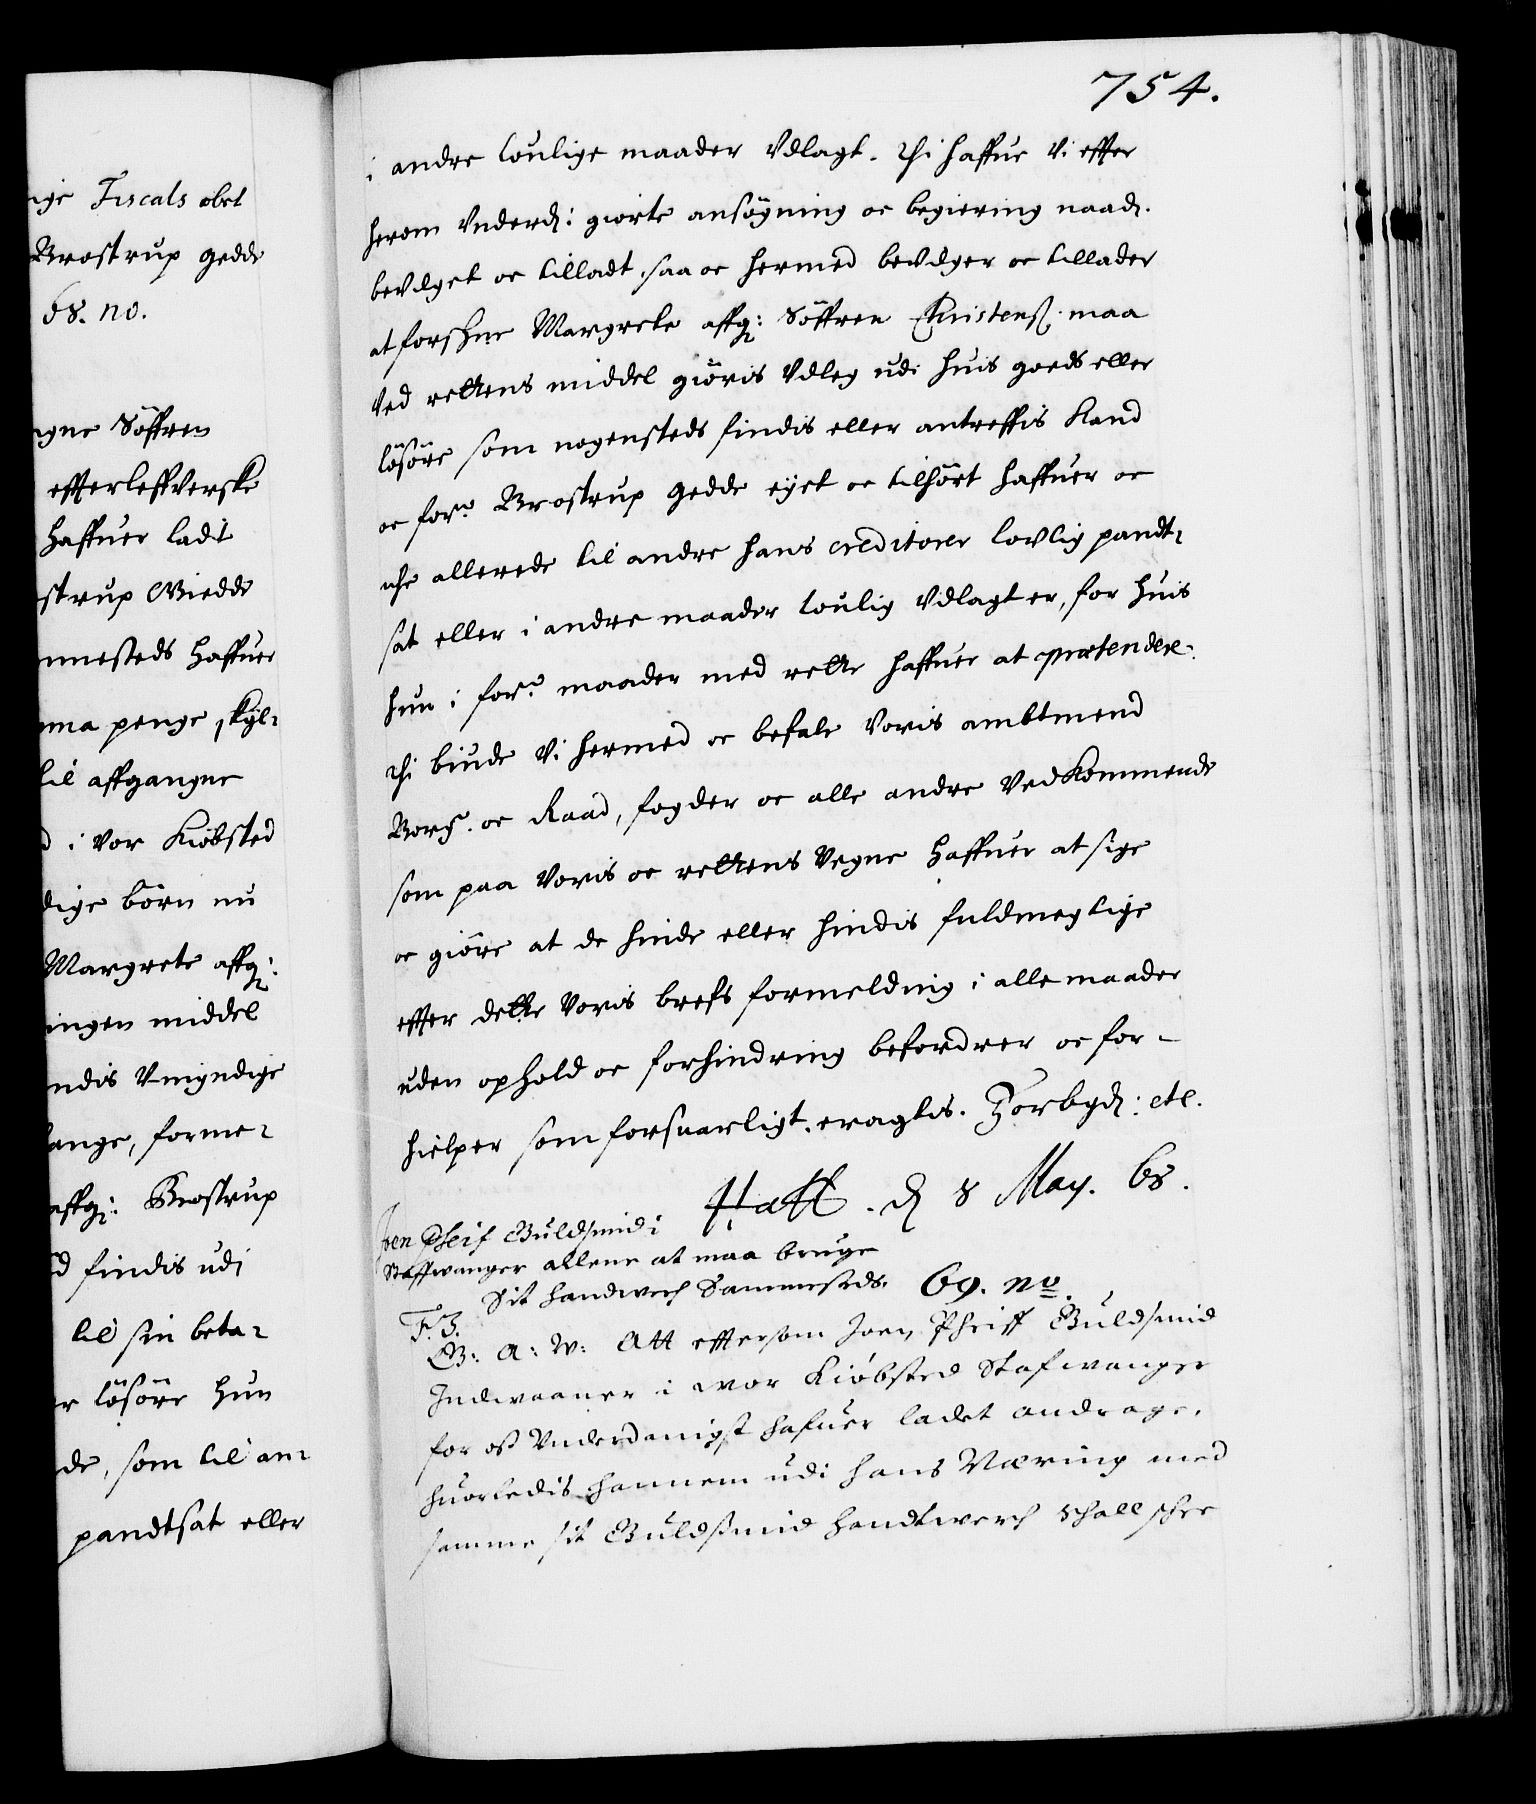 ige Fiscals obet
Brostrup gedde
68. no.
ngne Söffren
effterleffverske
haffuer ladt
strup Giedde
mmesteds haffuer
mma penge skyl-
til affgangne
d i vor Kiøbsted
dige börn nu
Margrete affg:
ingen middel
ndis Vmyndige
lange, forme-
affg: Brostrup
d findis udi
til sin beta-
er lösöre hun
de, som til an-
pandtsat eller
754.
i andre loulige maader Vdlagt. Thi haffue Vi effter
herom Vnderd: giorte ansögning oc begiering naad.
bevilget oc tilladt, saa oc hermed bevilger oc tillader
at forskne Margrete affg: Söffren Christens. maa
Ved rettens middel giöris Vdleg udi huis goeds eller
lösöre som nogensteds findis eller antreffis kand
oc for: Brostrup Gedde eyet oc tilhört haffuer oc
iche allerede til andre hans creditorer lovlig pandt-
sat eller i andre maader loulig Vdlagt er, for huis
hun i for: maader med rette haffuer at prætendere.
Thi biude Vi hermed oc befale Voris ambtmend
Borg. oc Raad, fogder oc alle andre Vedkommende
som paa Voris oc rettens Vegne haffuer at sige
oc giöre at de hinde eller hindis fuldmegtige
effter dette Voris brefs formelding i alle maader
uden ophold oc forhindring befordrer oc for-
hielper som forsuarligt eragtis. Forbyd: etc.
Haff. d 8 May. 68.
Joen Pheif Guldsmid i
Staffwanger allene at maa bruge
Sit handwerch Sammesteds. 69. no.
F. 3.
G: A: W: Att efftersom Joen Pheiff Guldsmid
Indwaaner i wor Kiöbsted Stafwanger
for oß Vnderdanigst hafuer ladet andrage,
huorledis hannem udi hans Næring med
samme sit Guldsmid handtwerch schall schee